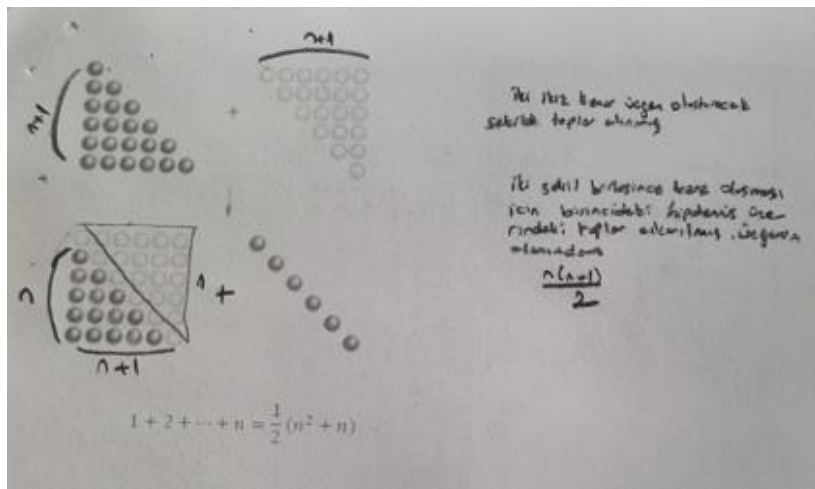 n+1
n+1
+
iki ikiz kenar üçgen oluşturacak
şekilde toplar alınmış
iki şekil birleşince kare oluşması
için birincideki hipotenüs üze
rindeki toplar çıkarılmış, üçgenin
n
n
+
n+1
n(n+1)
2
1 + 2 + ··· + n = 1/2 (n² + n)